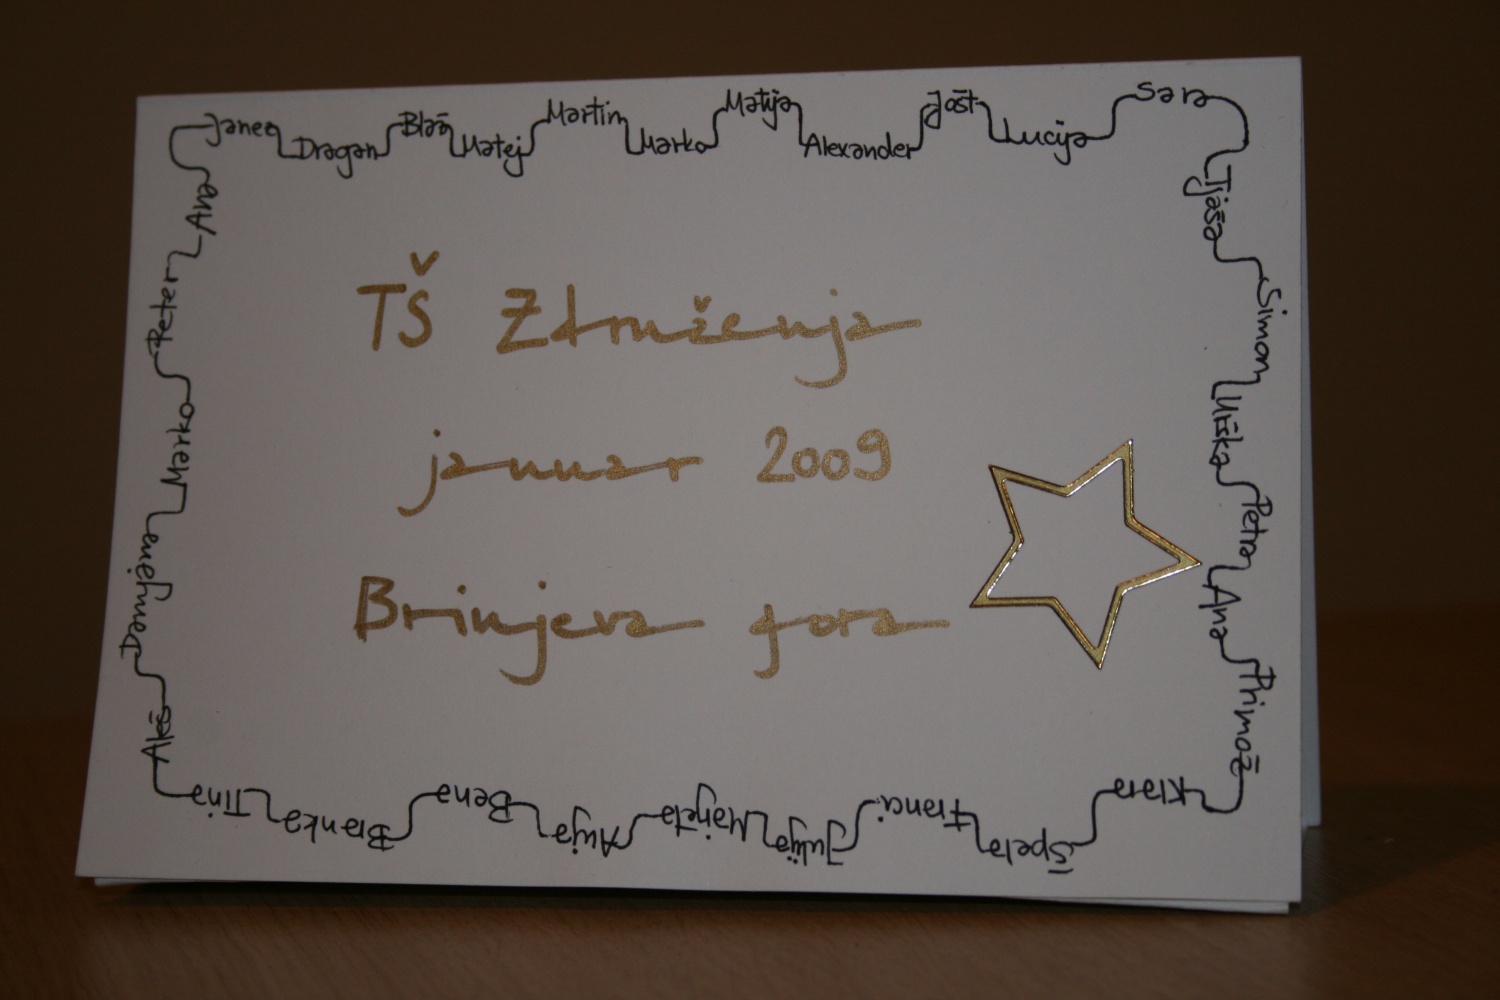 Janez Dragan Blaž Matej Martin Marko Matija Alexander Jošt Lucija Sara
Tjaša Simon Urška Petra Ana Primož
Klara Špela Franci Julija Marjeta Anja Bena Branka Tina
Aleš Marko Peter Ana
TŠ Združenja
januar 2009
Brinjeva gora